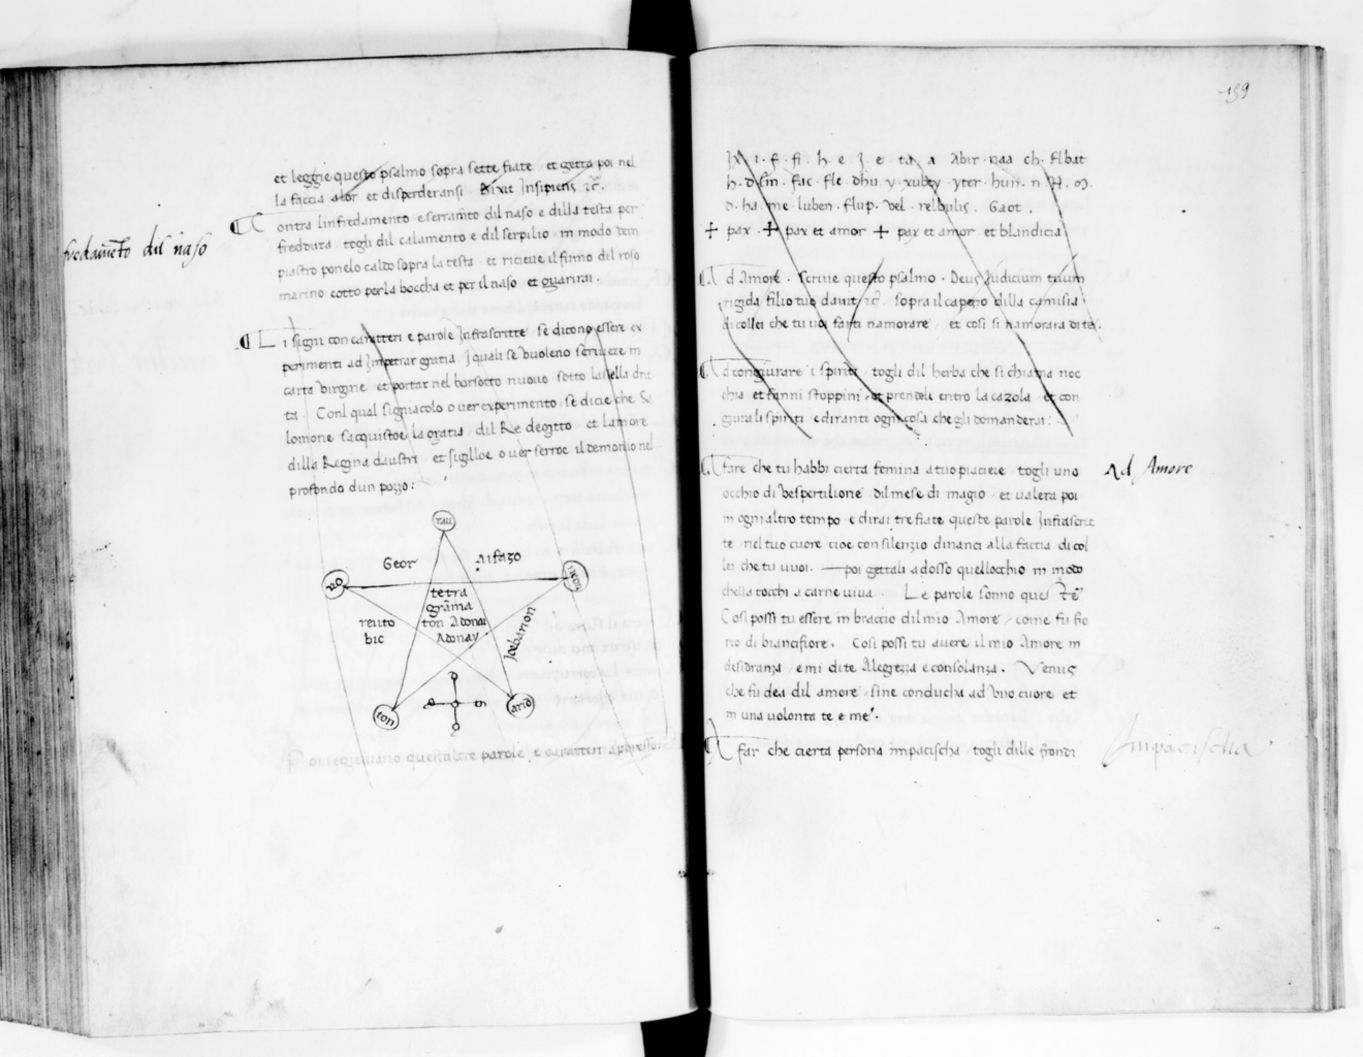 et leggie questo psalmo sopra sette fiate et getta poi nel
la faccia ator et disperderansi Dixit Insipiens
fredameto dil naso
ontra linfredamento e serramto dil naso e dilla testa per
fredura togli dil calamento e dil serpilio in modo dem
piastro ponelo caldo sopra la testa et ricieve il fumo dil roso
marino cotto per la boccha et per il naso et guarirai.
L i signi con caratteri e parole Infrascritte se dicono essere ex
perimenti ad Impetrar gratia I quali se vuoleno scrivere in
carta virgine et portar nel borsotto nuovo sotto lasella drit
ta. Con l qual signiacolo o ver experimento se dicie che Sa
lomone sacquistoe la gratia dil Re degitto et lamore
dilla Regina daustri et sigilloe o ver serroe il demonio nel
profondo dun pozzo:
rau
Geor Aifazo
rio
tetra
grãma
ton Adonai
Adonay
reuto
bic
Joebanon
ton
ario
onseguitano questaltre parole e caratteri appresso:
159
1 . f . fi . h . e J . e ta . a Abir . naa ch . flbat
h . d sin . fac . fle . dhu y . xubey . yter . huin . n
d . ha . me luben . flup . vel . relbulis . Gaot .
+ pax . + pax et amor + pax et amor et blandicia
A d Amore . Scrive questo psalmo . Deus Judicium tuum
rigida filio tuo davit sopra il capezo dilla camisia
di collei che tu voi farti namorare et cosi si namorara di te.
A d congiurare i spiriti togli dil herba che si chiama noc
chia et fanni stoppini et prendeli entro la cazola et con
giura li spiriti e diranti ogni cosa che gli domanderai:
A fare che tu habbi cierta femina a tuo piaciere togli uno
Ad Amore
occhio di vespertilione dil mese di magio et valera poi
in ogni altro tempo e dirai tre fiate queste parole Infrascrit
te nel tuo cuore cioe con silenzio dinanci alla faccia di col
lei che tu vuoi. — poi gettali adosso quellocchio in modo
chella tocchi a carne viva . Le parole sonno ques te
Cosi possi tu essere in braccio dil mio Amore come fu fio
rio di biancifiore . Cosi possi tu avere il mio Amore in
desidranza e mi dite Alegrezza e consolanza . Venus
che fu dea dil amore sine conducha ad uno cuore et
in una volonta te e me.
A far che cierta persona impacischa togli dille frondi
Impacischa